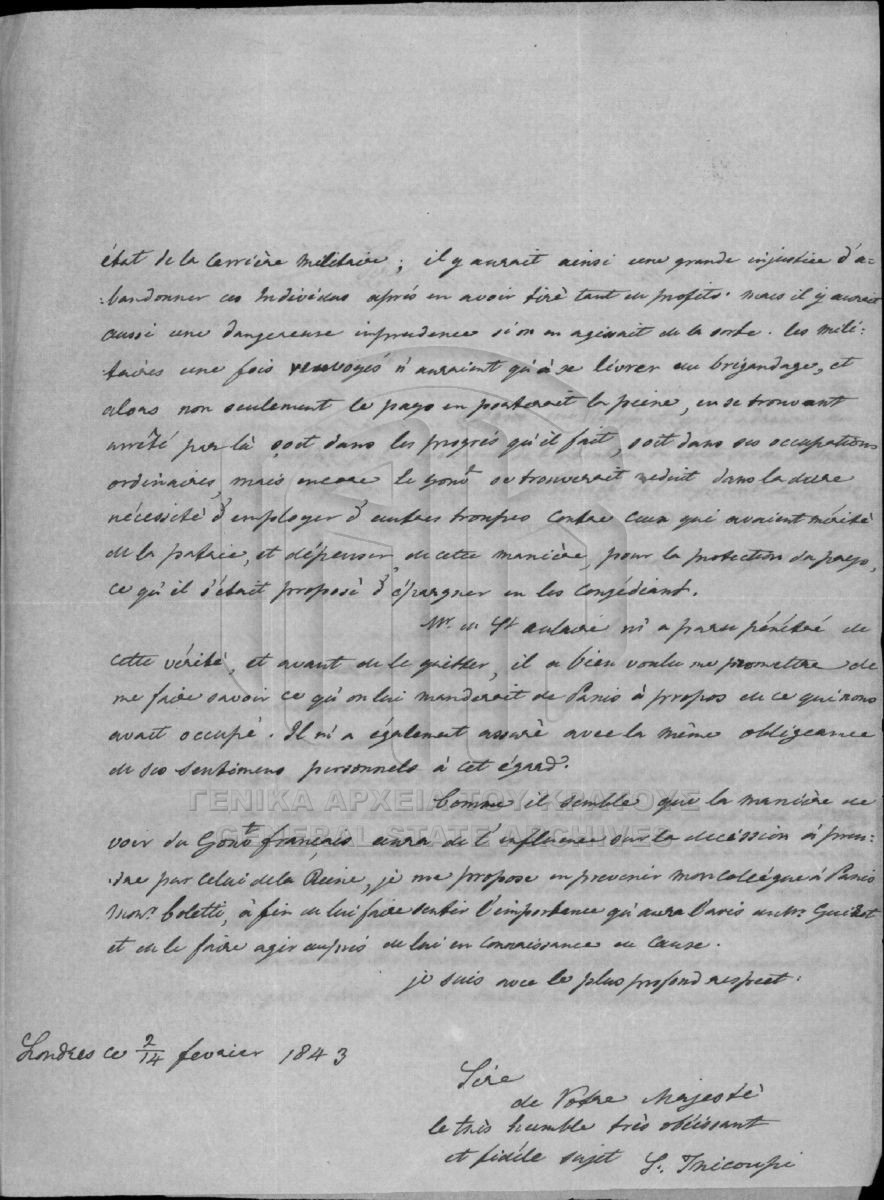 état de la Carrière militaire; il y aurait ainsi une grande injustice d'a-
-bandonner ces Individus après en avoir tirè tant de profits. mais il y aurait
aussi une dangereuse imprudence si on en agissait de la sorte. les mili-
taires une fois renvoyés n'auraient qu'à se livrer au brigandage, et
alors non seulement le pays en porterait la peine, en se trouvant
arrêté par là soit dans les progrés qu'il fait, soit dans ses occupations
ordinaires, mais encore le gouvt se trouverait reduit dans la dure
nécéssité d'employer d'autres trouppes contre ceux qui avaient mérité
de la patrie, et dépenser, de cette manière, pour la protection du pays,
ce qu'il s'était proposè d'épargner en les congédiant.
Mr. de St aulaire m'a paru pénétré de
cette vérité, et avant de le quitter, il a bien voulu me promettre de
me faire savoir ce qu'on lui manderait de Paris à propos de ce qui nous
avait occupé. Il m'a également assurè avec la même obligeance
de ses sentimens personnels à cet égard.
ΓΕΝΙΚΑ ΑΡΧΕΙΑ ΤΟΥ ΚΡΑΤΟΥΣ
GENERAL STATE ARCHIVES
Comme il semble que la manière de
voir du Gouvt français aura de l'influence sur la decission à pren-
-dre par celui de la Reine, je me propose en prevenir mon collègue à Paris
Monr. Coletti, à fin de lui faire sentir l'importance qu'aura l'avis de Mr. Guizot
et de le faire agir auprès de lui en connaissance de cause.
je suis avec le plus profond respect.
Londres ce 2/14 fevrier 1843
Sire
de Votre Majestè
le très humble très obéissant
et fidéle sujet S. Tricoupi